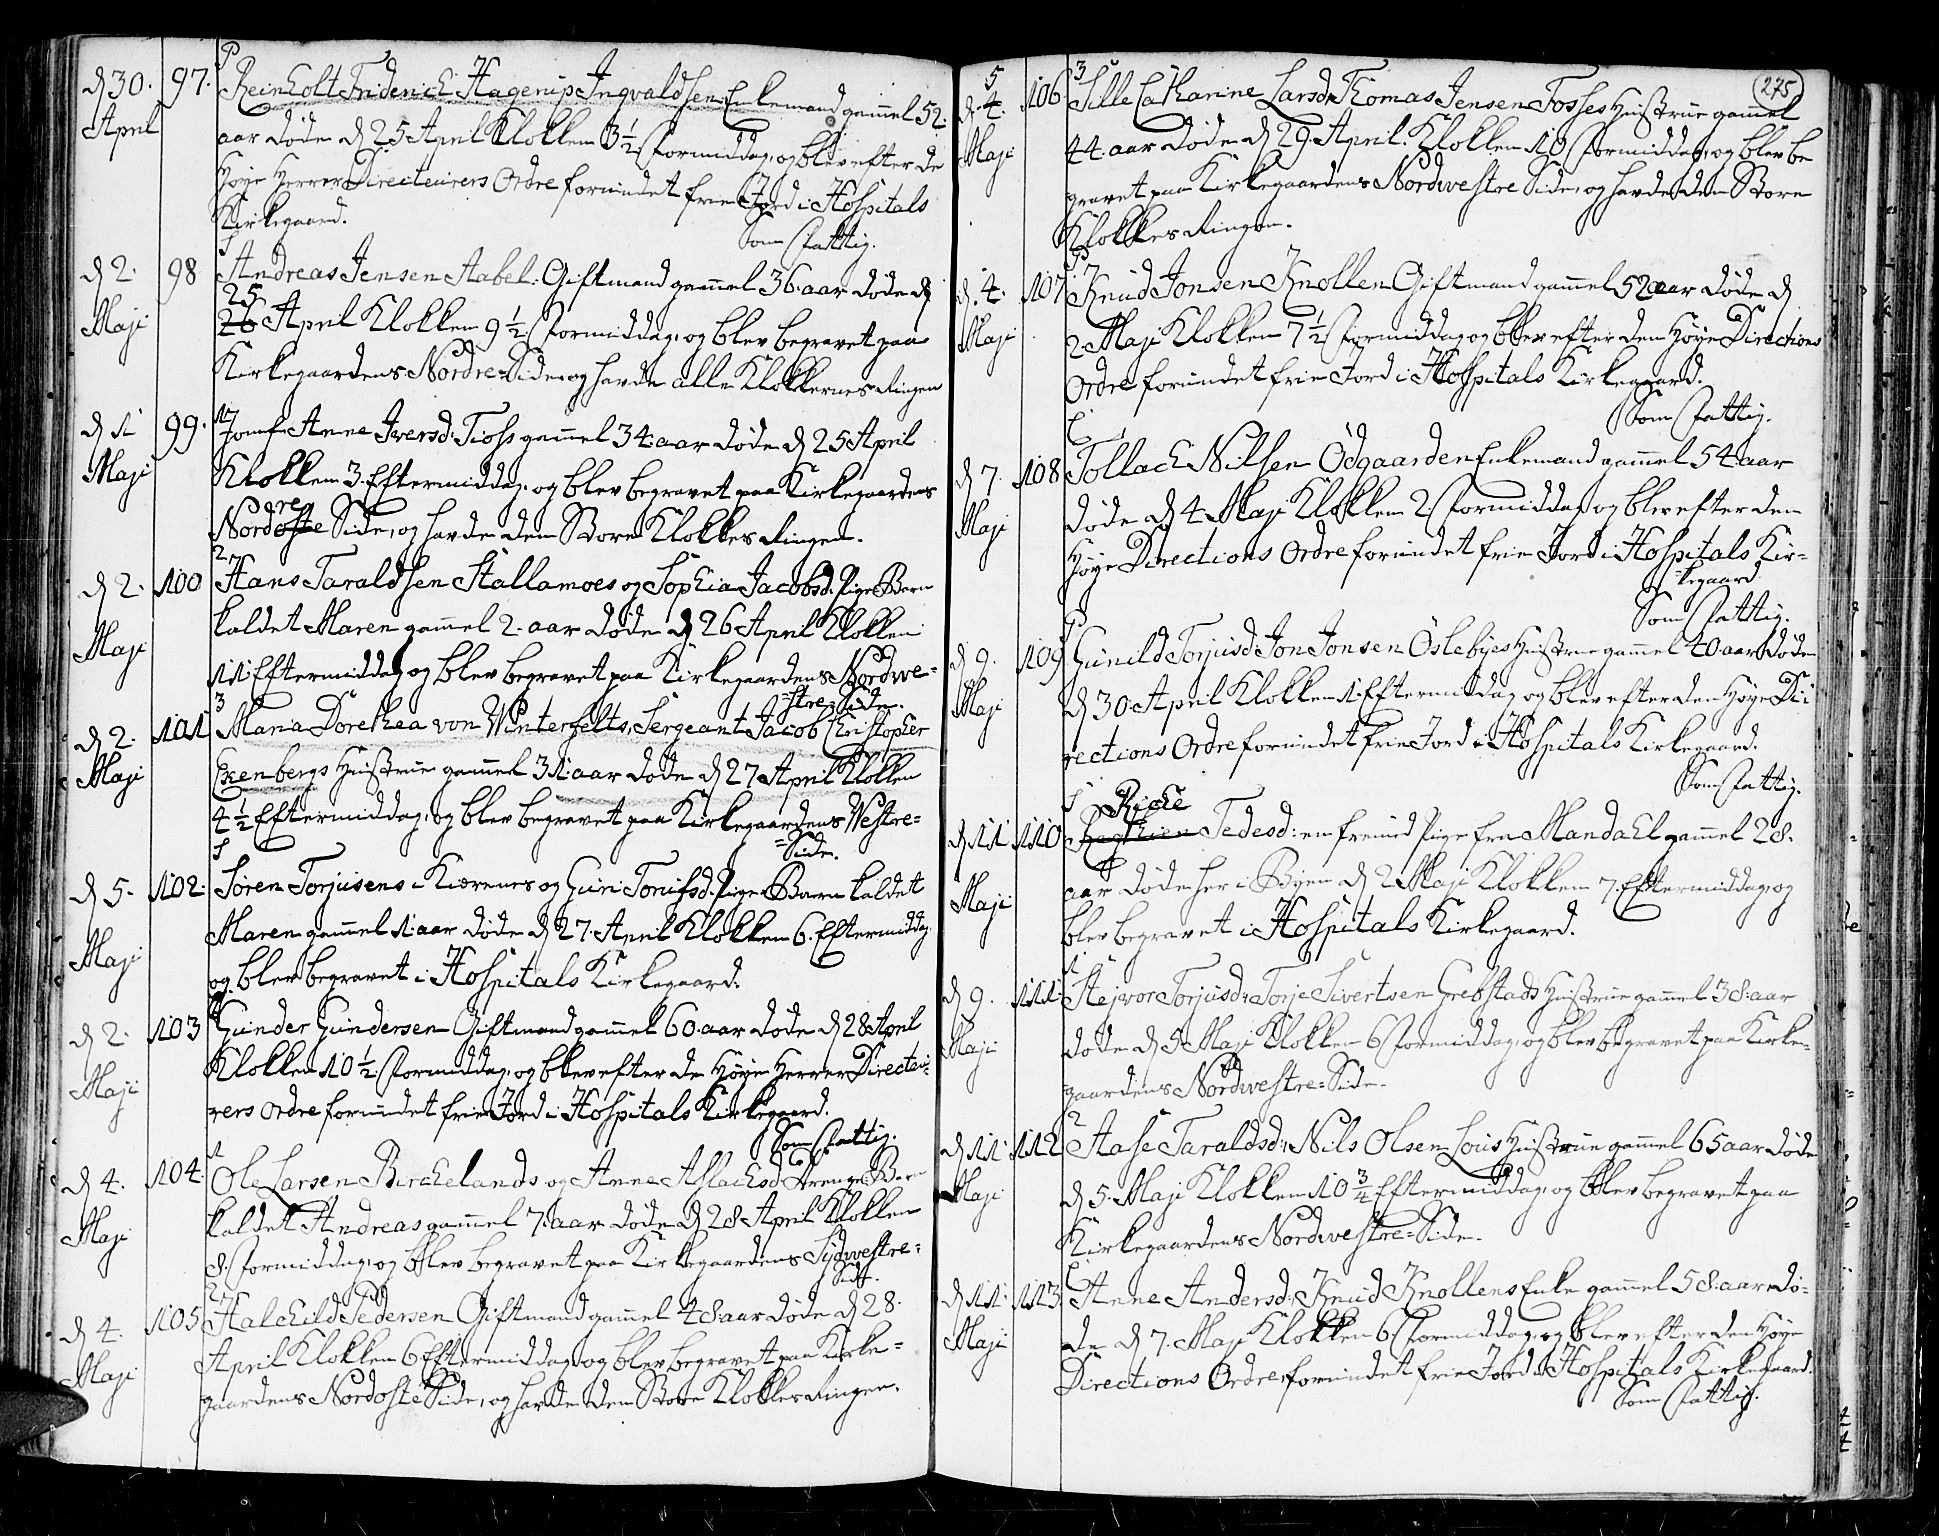 P
d 30. 97. Reinholt Friderich Hagerup Ingvaldsen Enkemand gammel 52.
April aar døde d 25 April Klokken 3 1/2 Formiddag, og blev efter de
Høye Herrer Directeurers Ordre forundet frie Jord i Hospitals
Kirkegaard.
Som Fattig.
S
d 2. 98 Andreas Jensen Aabel. Giftmand gammel 36 aar døde d
25
Maji 26 April Klokken 9 1/2 Formiddag, og blev begravet paa
Kirkegaardens Nordre-Side, og havde alle Klokkernes Ringen
1
d 1 99. Jomfr. Anne Iversd. Tioss gammel 34 aar døde d 25 April
Maji Klokken 3 Eftermiddag, og blev begravet paa Kirkegaardens
re
Nordoste Side, og havde den Store Klokkes Ringen.
2
d 2. 100 Hans Taraldsen Stallamoes og Sophia Jacobsd. Pige-Barn
kaldet Maren gammel 2 aar døde d 26 April Klokken
Maji
11 Eftermiddag og blev begravet paa Kirkegaardens Nordwe=
=stre-Side.
3
d 2. 101 Maria Dorethea von Winterfelts, Sergeant Jacob Christopher
Maji Exenbergs Hustrue gammel 31 aar døde d 27 April Klokken
4 1/2 Eftermiddag, og blev begravet paa Kirkegaardens Westre=
=Side.
S
d 5. 102. Søren Torjusens i Kierenes og Guri Torufsd. Pige-Barn kaldet
Maren gammel 1 aar døde d 27 April Klokken 6. Eftermiddag,
Maji
og blev begravet i Hospitals Kirkegaard.
d 2. 103 Gunder Gundersen Giftmand gammel 60 aar døde d 28 April
Klokken 10 1/2 Formiddag, og blev efter de Høye Herrer Directeu=
Maji
rers Ordre forundet frie Jord i Hospitals Kirkegaard.
Som Fattig.
1
d 4. 104. Ole Larsen Birchelands og Anne Aslachsd. Drenge-Barn
kaldet Andreas gammel 7 aar døde d 28 April Klokken
Maji
8. Formiddag, og blev begravet paa Kirkegaardens Sydwestre=
Side.
2
d 4. 105 Halchild Pedersen Giftmand gammel 48 aar døde d 28.
Maji April Klokken 6 Eftermiddag, og blev begravet paa Kirke=
gaardens Nordoste Side, og havde den Store Klokkes Ringen.
275
5 3
d. 4. 106 Sille Catharine Larsd. Thomas Jensen Fosses Hustrue gammel
Maji 44 aar døde d 29 April. Klokken 10 Formiddag, og blev be
gravet paa Kirkegaardens Nordwestre Side, og havde den Store
Klokkes Ringen.
P
d. 4. 107 Knud Jonsen Knollen Giftmand gammel 52 aar døde d
Maji 2 Maji Klokken 7 1/2 Formiddag og blev efter den Høye Directions
Ordre forundet frie Jord i Hospitals Kirkegaard.
Som Fattig.
d 7. 108 Tollach Nilsen Ødgaarden Enkemand gammel 54 aar
Maji døde d 4 Maji Klokken 2 Formiddag og blev efter den
Høye Directions Ordre forundet frie Jord i Hospitals Kir=
=kegaard
Som Fattig.
P
d 9. 109 Gunild Torjusd. Jon Jonsen Oslebyes Hustrue gammel 40 aar døde
Maji d 30 April Klokken 1 Eftermiddag og blev efter den Høye Di
rections Ordre forundet frie Jord i Hospitals Kirkegaard.
Som Fattig.
S Riche
d 11 110 Tedesd: en fremd Pige fra Mandahl gammel 28.
Maji aar døde her i Byen d 2 Maji Klokken 7. Eftermiddag, og
blev begravet i Hospitals Kirkegaard.
1
d 9. 111. Stejvor Torjusd. Torje Sivertsen Grebstads Hustrue gammel 38 aar
Maji døde d 5 Maji Klokken 6 Formiddag, og blev begravet paa Kirke=
gaardens Nordwestre=Side.
2
d 11 112 Aase Taraldsd. Nils Olsen Lous Hustrue gammel 65 aar døde
Maji d 5. Maji Klokken 10 3/4 Eftermiddag, og blev begravet paa
Kirkegaardens Nordwestre=Side.
d 11 113. Anne Andersd. Knud Knollens Enke gammel 58 aar dø=
Maji de d 7. Maji Klokken 6 Formiddag, og blev efter den Høye
Directions Ordre, forundet frie Jord i Hospitals Kirkegaard.
Som Fattig.